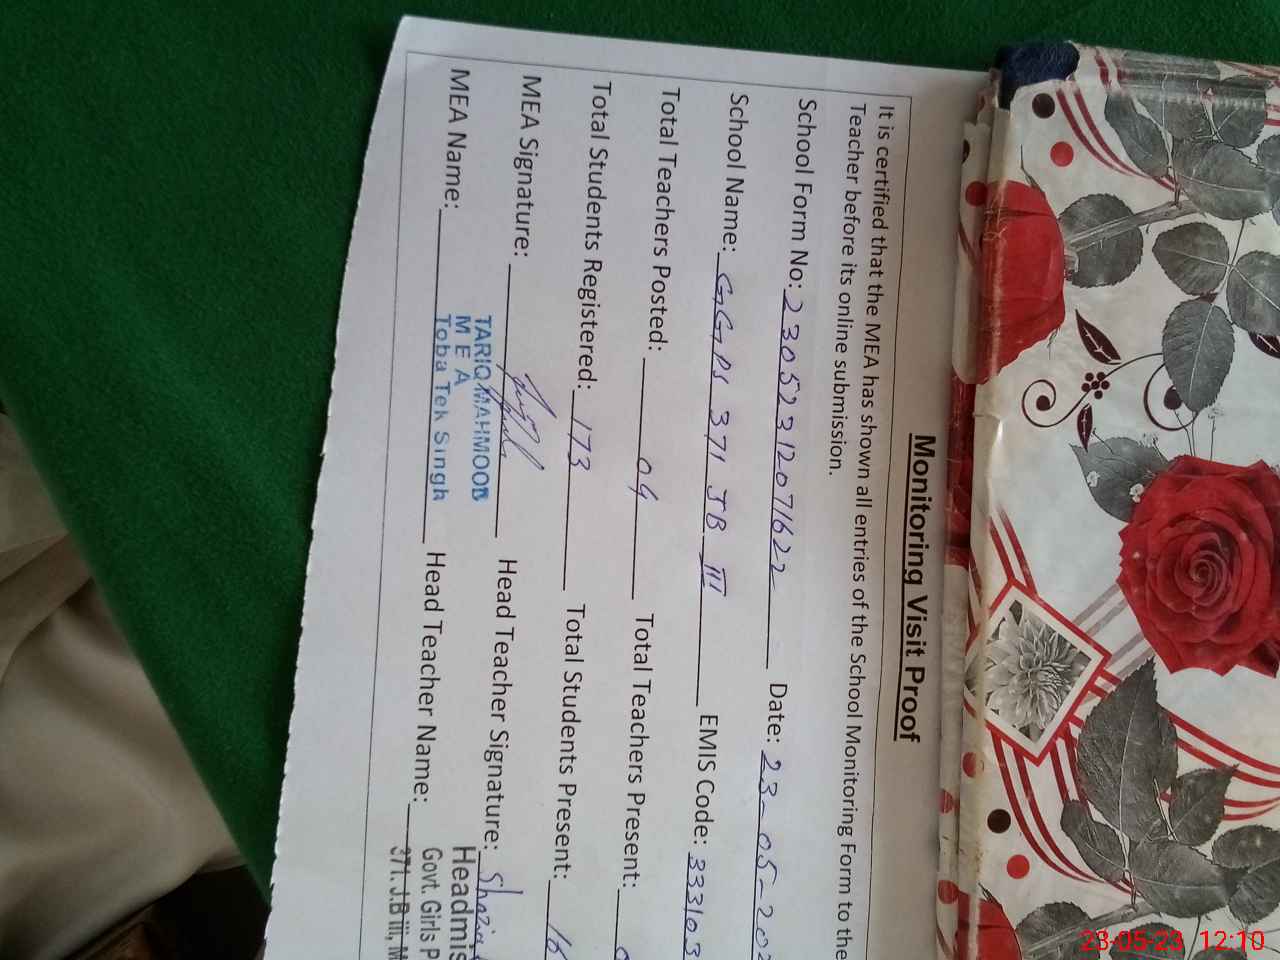 Monitoring Visit Proof
It is certified that the MEA has shown all entries of the School Monitoring Form to the
Teacher before its online submission.
School Form No: 23052312071622 Date: 23-05-202
School Name: GGPS 371 JB III EMIS Code: 333103
Total Teachers Posted: 04 Total Teachers Present:
Total Students Registered: 173 Total Students Present: 16
MEA Signature: Head Teacher Signature: Shazia
TARIQ MAHMOOD
M E A
Toba Tek Singh
MEA Name: Head Teacher Name:
Headmis
Govt. Girls P
371. J.B iii, M
23-05-23 12:10